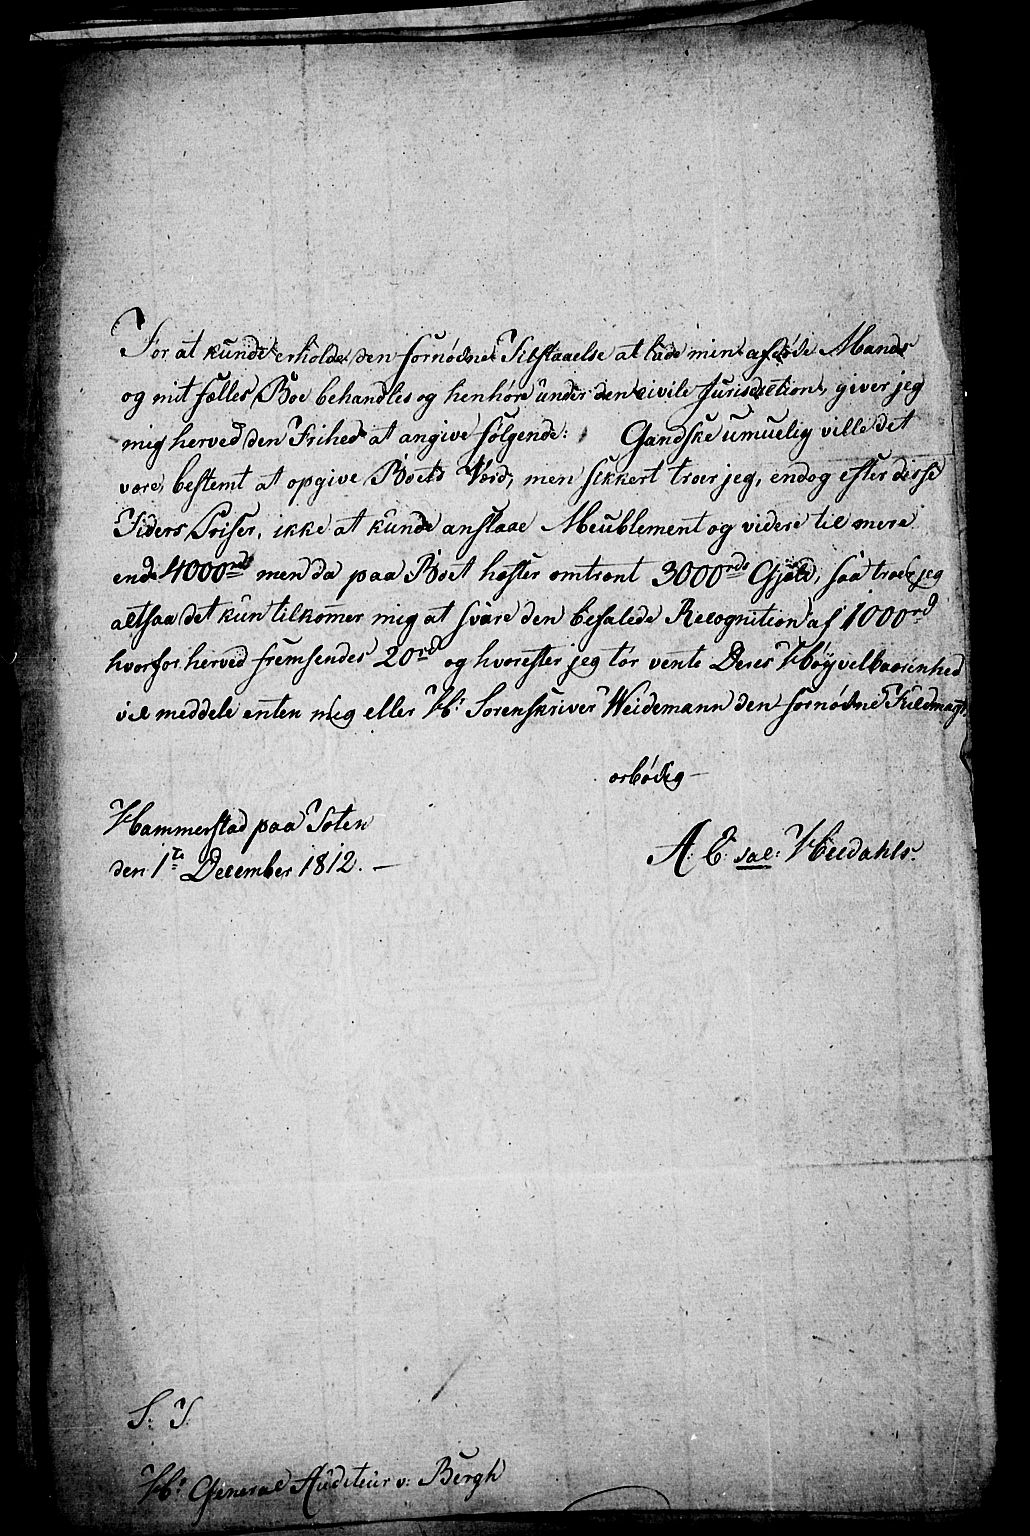 For at kunde erholde den fornødne Tilstaaelse at lade min afdøde Mands
og mit fælles Boe behandles og henhøre under den civile Jurisdiction, giver jeg
mig herved den Frihed at angive følgende: Gandske umuelig ville det
være, bestemt at opgive Boets Værd, men sikkert troer jeg, endog efter disse
Tiders Priser, ikke at kunde anslaae Meublement og videre til mere
end 4000rd men da paa Boet hæfter omtrent 3000rd Gjæld, saa troer jeg
altsaa det kun tilkommer mig at svare den befalede Recognition af 1000rd
hvorfor herved fremsendes 20rd og hvorefter jeg tør vente Deres Høyvelbaarenhed
vil meddele enten mig eller Hr Sorenskriver Weidemann den fornødne Fuldmagt.
ærbødig
Hammerstad paa Toten
den 1te December 1812. —
A: C: sal: Heedahls.
S: T:
Hr General Auditeur v: Bergh